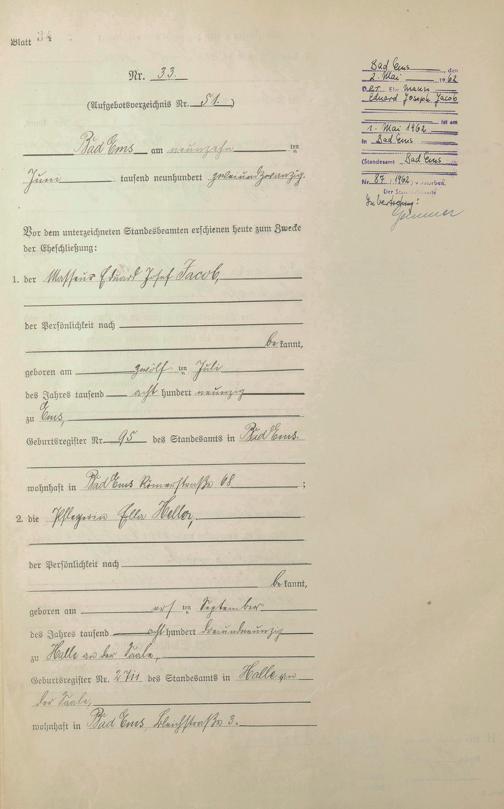 Blatt 34
Nr. 33.
(Aufgebotsverzeichnis Nr. 51.)
Bad Ems am neunzehn ten
Juni tausend neunhundert zweiundzwanzig.
Vor dem unterzeichneten Standesbeamten erschienen heute zum Zwecke
der Eheschließung:
1. der Masseur Eduard Josef Jacob,
der Persönlichkeit nach
be kannt,
geboren am zwölf ten Juli
des Jahres tausend acht hundert neunzig
zu Ems,
Geburtsregister Nr. 95 des Standesamts in Bad Ems.
wohnhaft in Bad Ems Römerstraße 68 ;
2. die Pflegerin Ella Heller,
der Persönlichkeit nach
be kannt,
geboren am ten September
des Jahres tausend acht hundert dreiundneunzig
zu Halle an der Saale,
Geburtsregister Nr. 2711 des Standesamts in Halle an
der Saale,
wohnhaft in Bad Ems, Bleichstraße 3.
Bad Ems, den
2. Mai 1962
D er Ehemann
Eduard Joseph Jacob
ist am
1. Mai 1962
in Bad Ems
(Standesamt Bad Ems
Nr. 87/1962) verstorben.
Der Standesbeamte
In Vertretung: